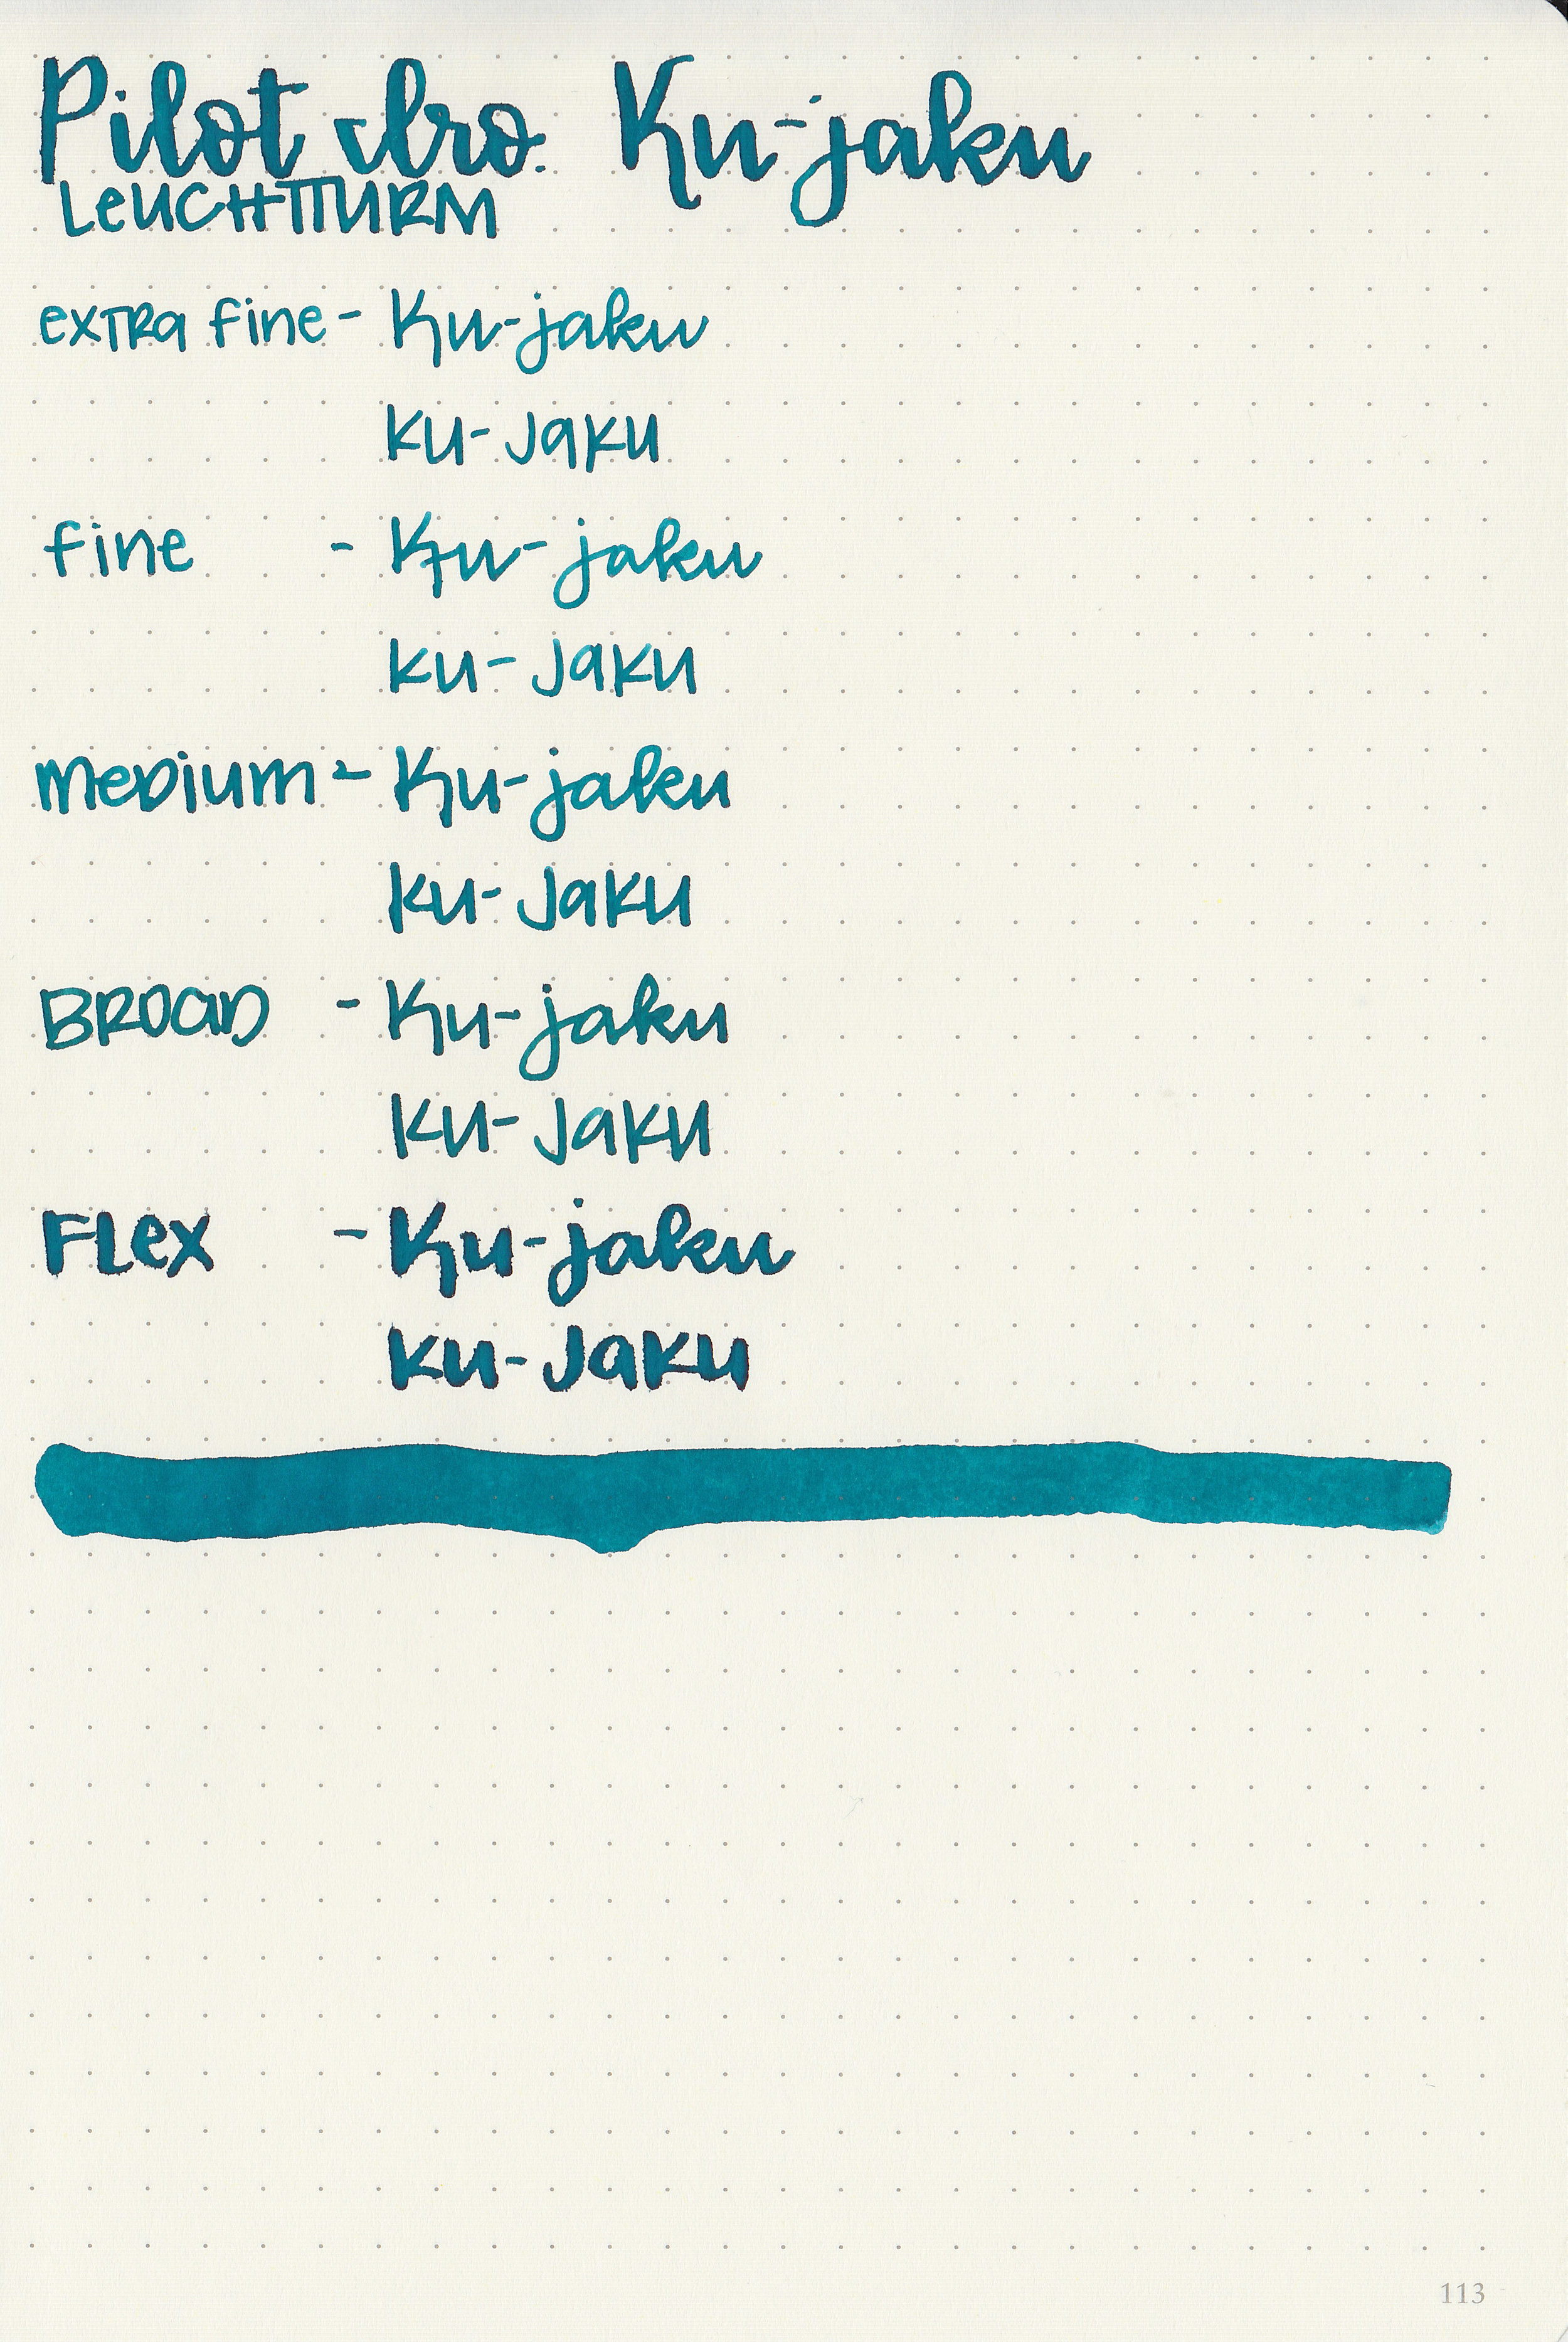 Pilot Iro. Ku-jaku
LEUCHTTURM
extra fine - Ku-jaku
Ku-Jaku
fine - Ku-jaku
Ku-Jaku
Medium - Ku-jaku
Ku-Jaku
BROAD - Ku-jaku
Ku-Jaku
FLex - Ku-jaku
Ku-Jaku
113